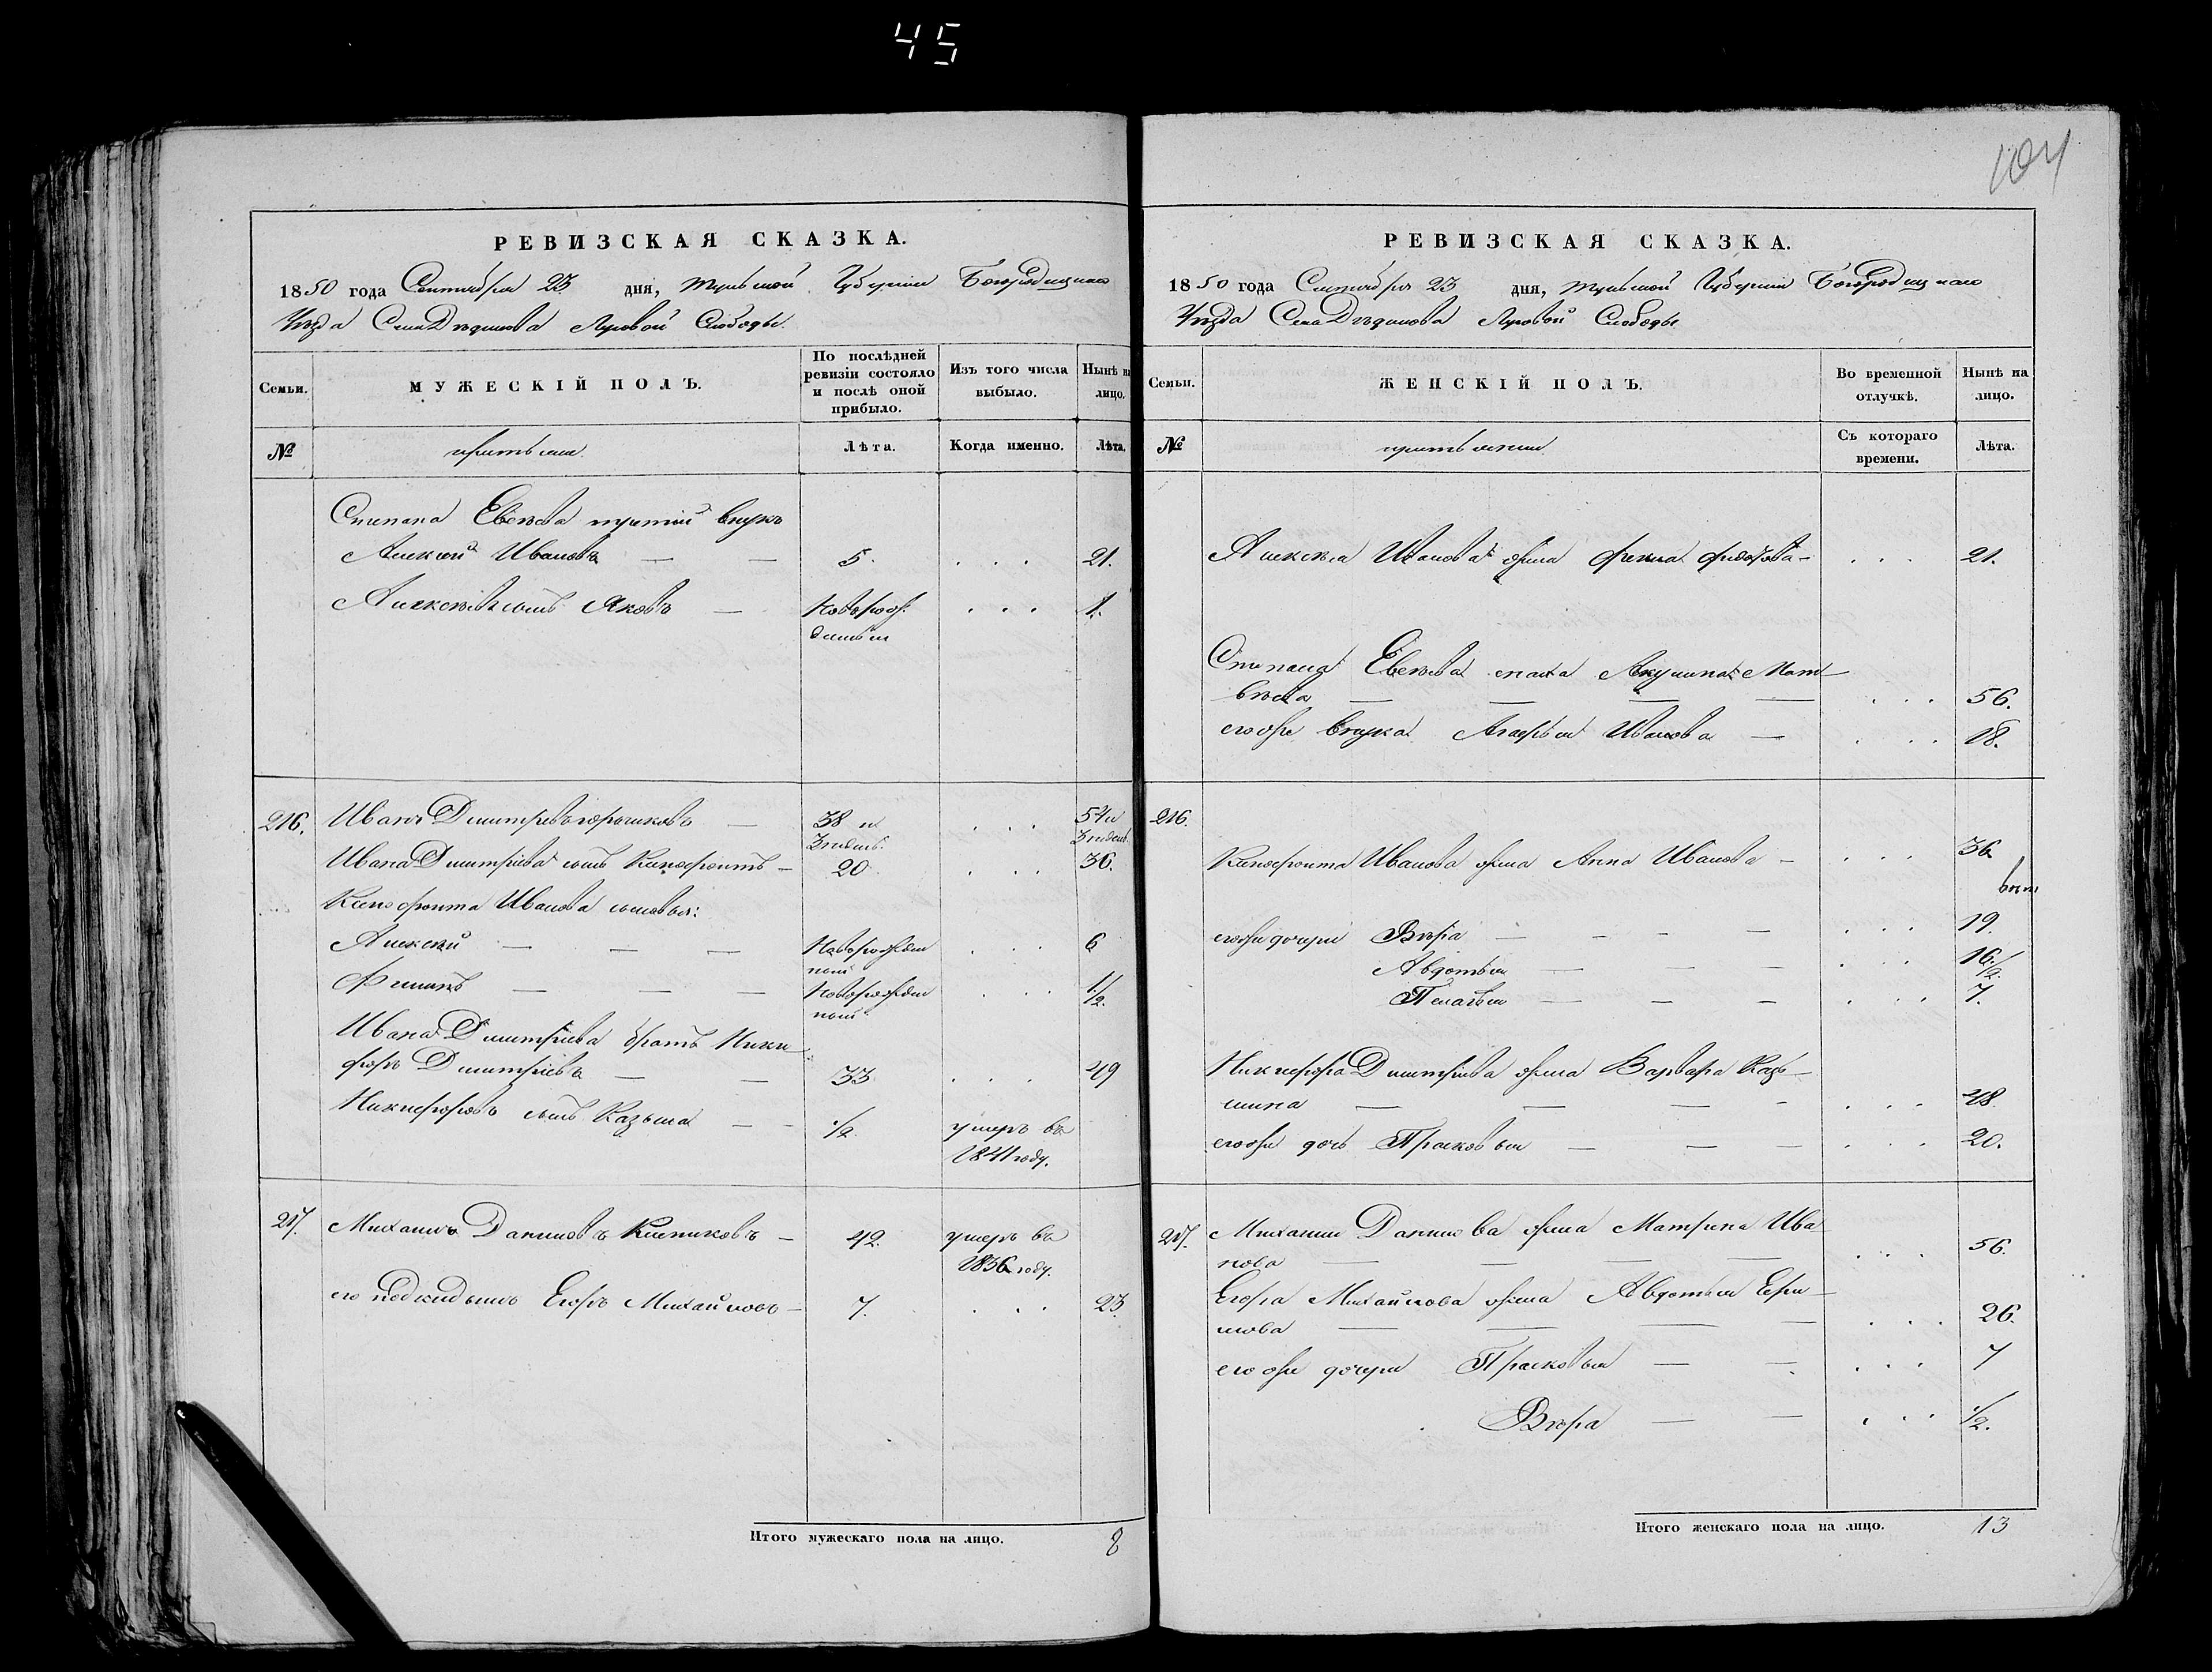 45
104
РЕВИЗСКАЯ СКАЗКА.
1850 года Сентября 23 дня, Тульской Губерніи Богородицкаго
Уѣзда Села Дѣдилова Луговой Слободы
Семьи.
МУЖЕСКІЙ ПОЛЪ.
По послѣдней
ревизіи состояло
и послѣ оной
прибыло.
Изъ того числа
выбыло.
Нынѣ на
лицо.
№
Лѣта.
Когда именно.
Лѣта.
Степана Евсѣева третій внукъ
Алексѣй Ивановъ — — 5. . . . 21.
Алексѣевъ сынъ Яковъ — Новорож- . . . 1.
денный
216. Иванъ Дмитревъ — 38 и . . . 54 и
3 недел. 3 недел.
Ивана Дмитріева сынъ Ксенофонтъ — 20 . . . 36.
Ксенофонта Иванова сыновья:
Алексѣй — — — Новорожден . . . 6
ный
Филипъ — — — Новорожден . . . 1/2.
ный
Ивана Дмитріева братъ Ники-
форъ Дмитріевъ — — 33 . . . 49
Никифоровъ сынъ Казьма — — 1/2. умеръ въ
1841 году.
217. Михаилъ Даниловъ — 42. умеръ въ
1836 году.
его подкидышъ Егоръ Михайловъ — 7. . . . 23.
Итого мужескаго пола на лицо. 8
РЕВИЗСКАЯ СКАЗКА.
1850 года Сентября 23 дня, Тульской Губерніи Богородицкаго
Уѣзда Села Дѣдилова Луговой Слободы
Семьи.
ЖЕНСКІЙ ПОЛЪ.
Во временной
отлучкѣ.
Нынѣ на
лицо.
№
Съ котораго
времени.
Лѣта.
Алексѣя Иванова жена Федотова — . . . 21.
Степана Евсѣева сноха Акулина Мат-
вѣева — — — — . . . 56.
его же внука Агафья Иванова — . . . 18.
216.
Ксенофонта Иванова жена Анна Иванова — . . . 36
его же дочери Вѣра — — — — . . . 19.
Авдотья — — — . . . 16 1/2.
Пелагѣя — — — . . . 7.
Никифора Дмитріева жена Варвара Казь-
мина — — — — . . . 48
его же дочь Прасковья — — — . . . 20.
217. Михаила Данилова жена Матрена Ива
нова — — — — . . . 56.
Егора Михайлова жена Авдотья
— — — — . . . 26.
его же дочери Прасковья — — . . . 7
Вѣра — — . . . 1/2.
Итого женскаго пола на лицо. 13